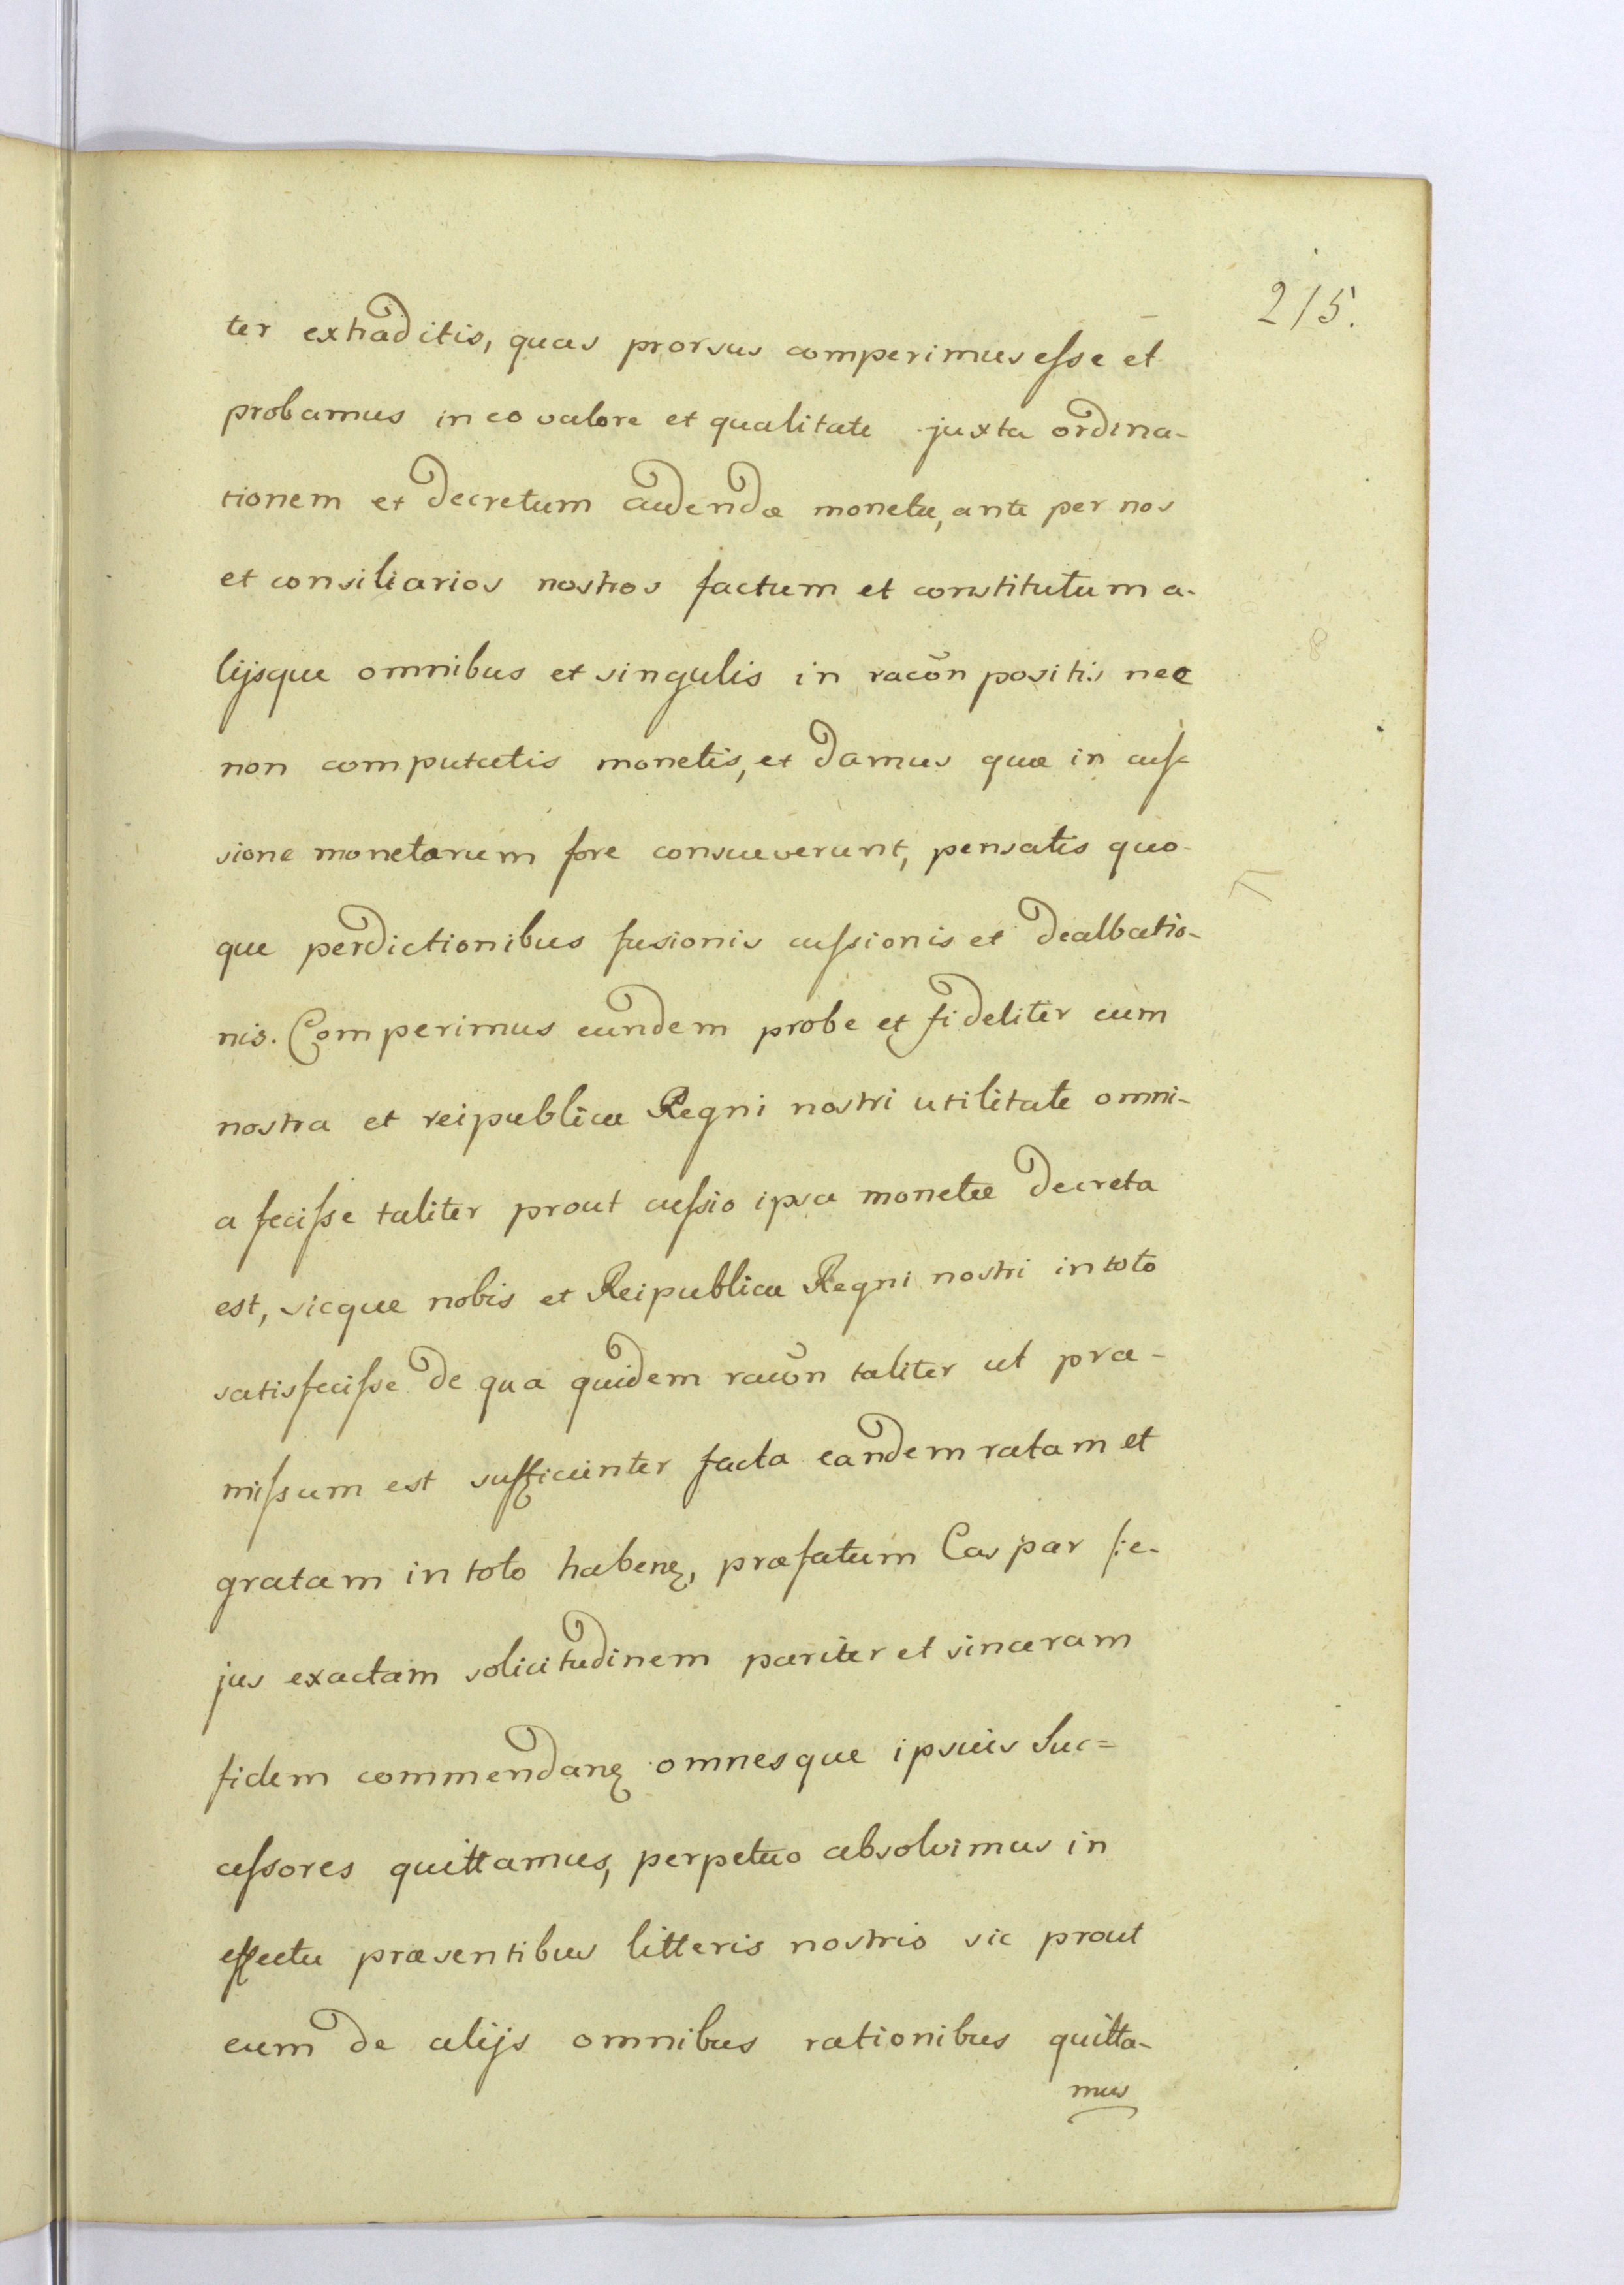 215.
ter extraditis, quas prorsus comperimus esse et
probamus in eo valore et qualitate juxta ordina-
tionem et decretum cudendæ monetæ, ante per nos
et consiliarios nostros factum et constitutum a-
lijsque omnibus et singulis in racōn positis nec
non computatis monetis, et damus quæ in cus-
sione monetarum fore consueverunt, pensatis quo-
que perdictionibus fusionis cussionis et dealbatio-
nis. Comperimus eundem probe et fideliter cum
nostra et reipublicæ Regni nostri utilitate omni-
a fecisse taliter prout cussio ipsa monetæ decreta
est, sicque nobis et Reipublicæ Regni nostri in toto
satisfecisse de qua quidem racōn taliter ut præ-
missum est sufficienter facta eandem ratam et
gratam in toto haben, præfatum Caspar /:e-
jus exactam solicitudinem pariter et sinceram
fidem commendan omnesque ipsius Suc=
cessores quittamus, perpetuo absolvimus in
effectu præsentibus litteris nostris sic prout
eum de alijs omnibus rationibus quitta-
mus